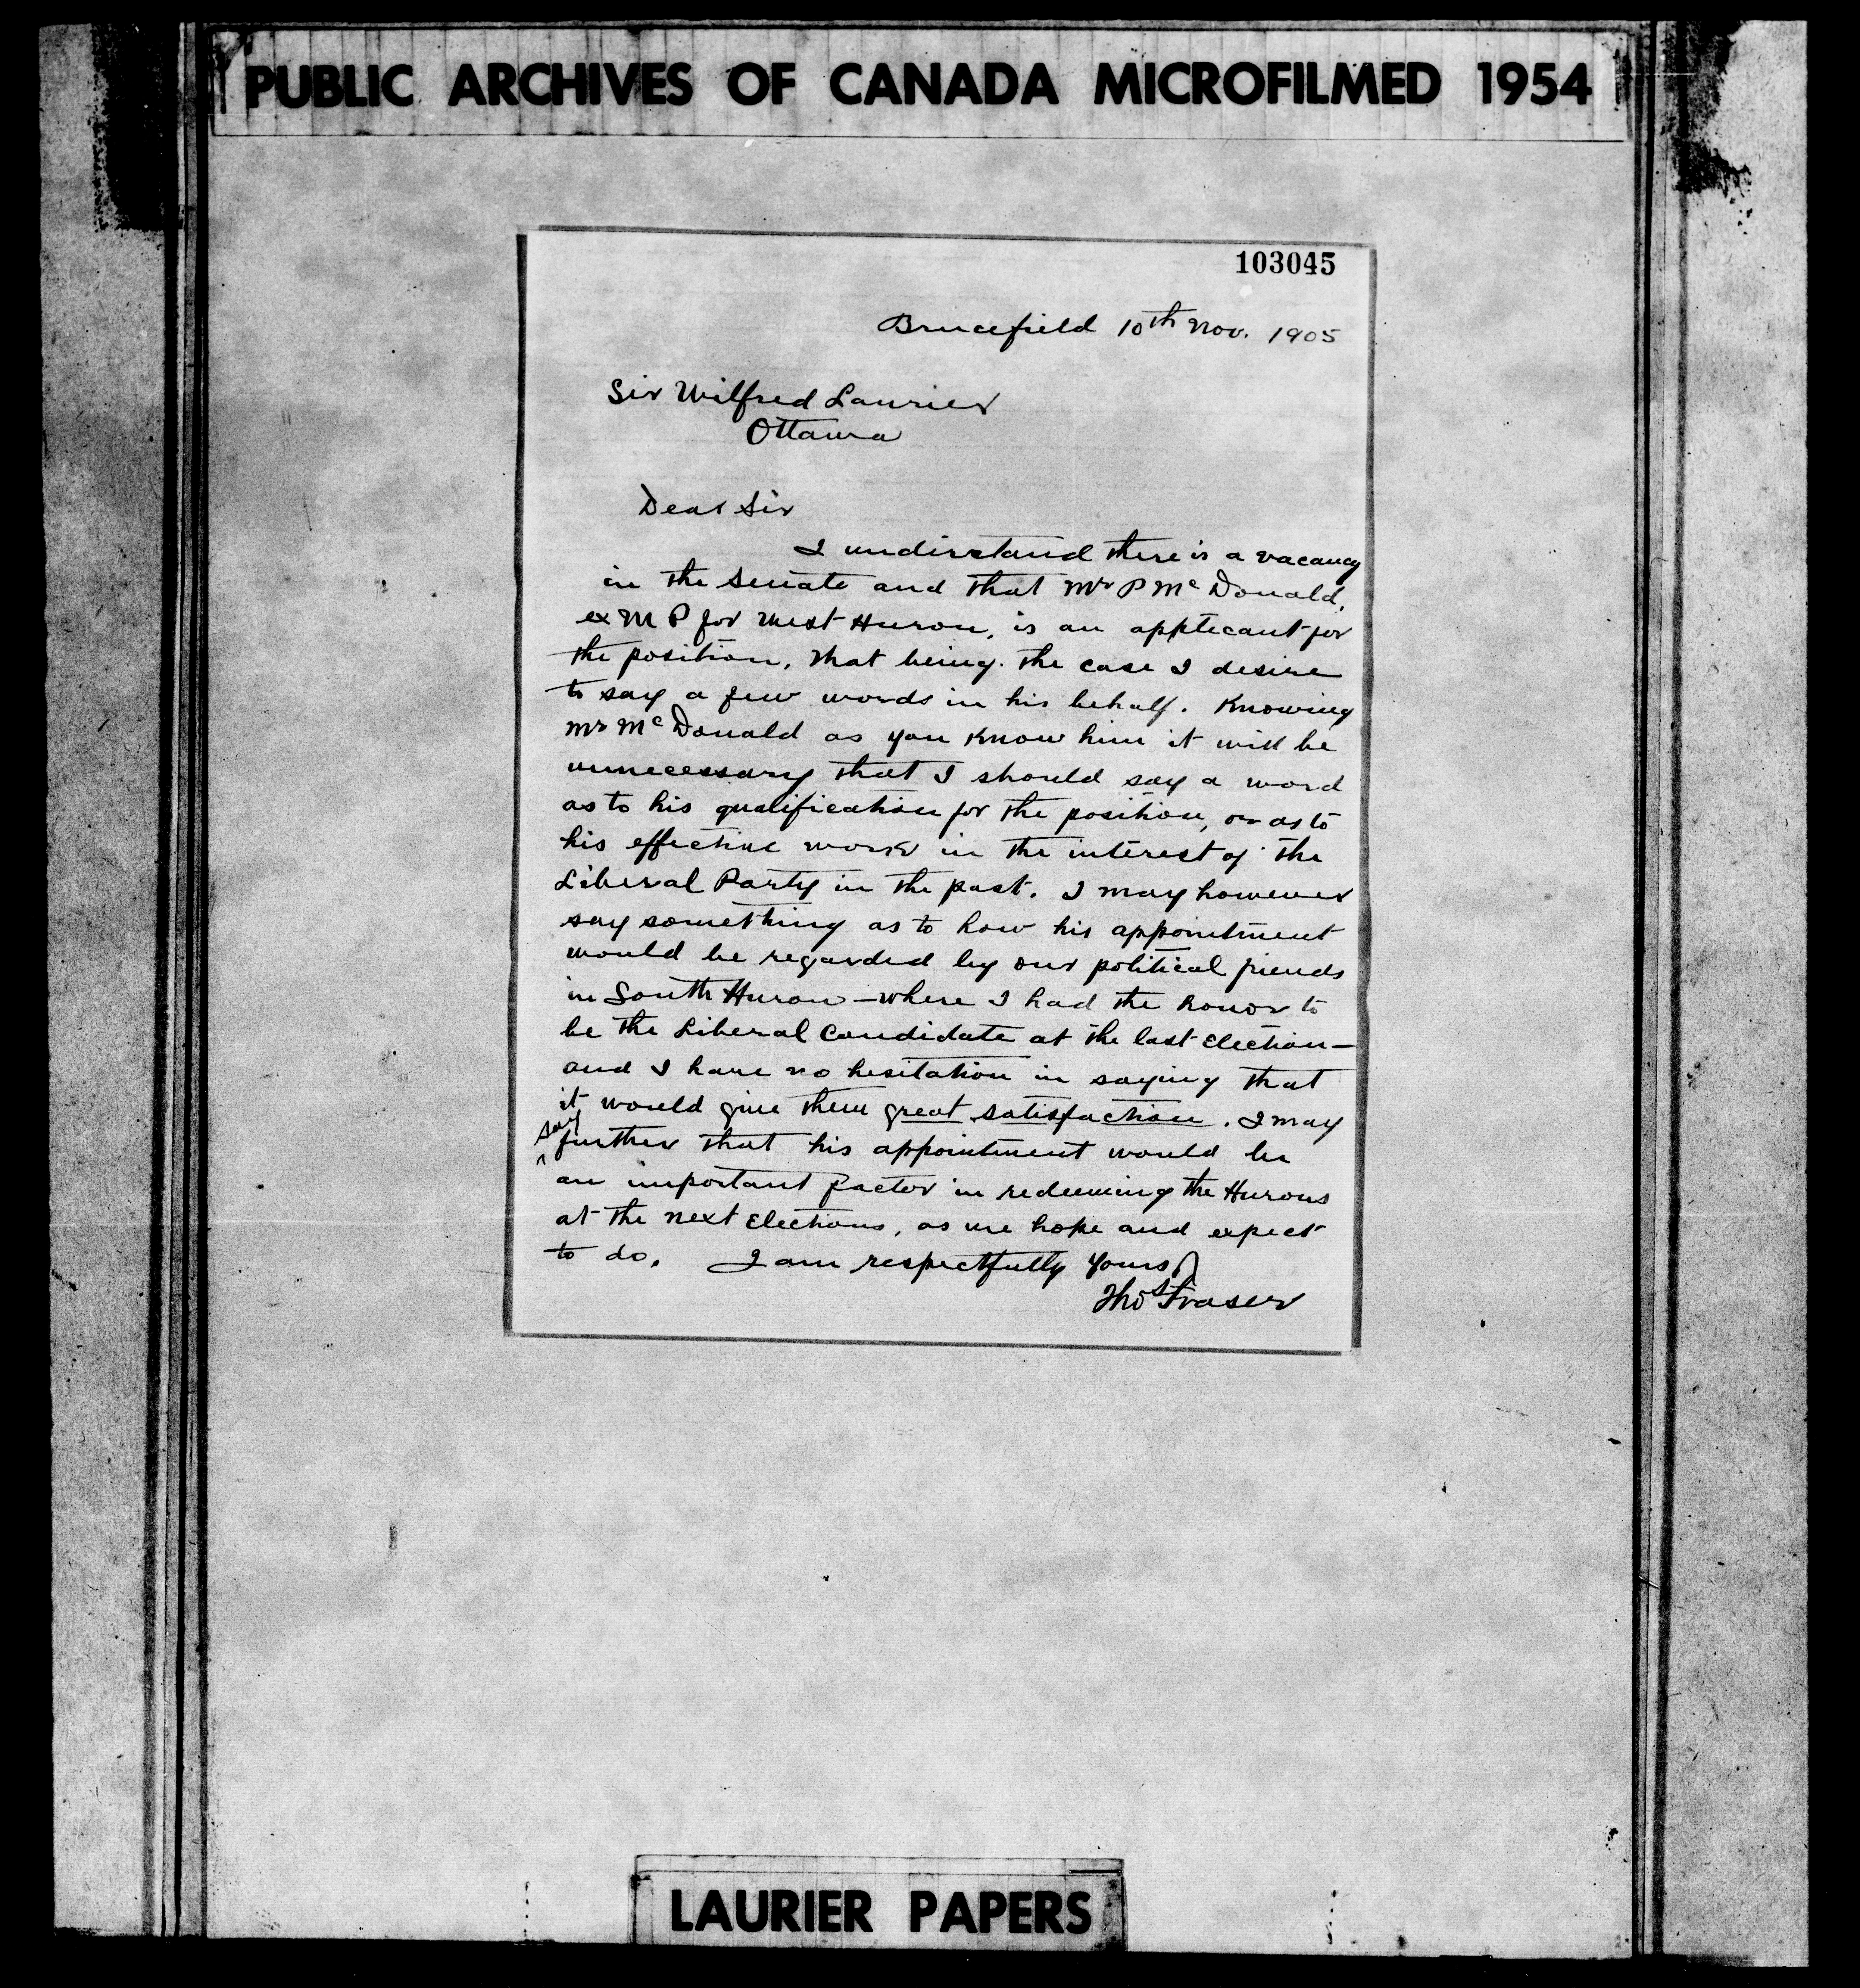 PUBLIC ARCHIVES OF CANADA MICROFILMED 1954
103045
Brucefield 10th Nov. 1905
Sir Wilfred Laurier
Ottawa
Dear Sir
I understand there is a vacancy
in the Senate and that Mr P McDonald,
ex M P for West Huron, is an applicant for
the position. That being the case I desire
to say a few words in his behalf. Knowing
Mr McDonald as you know him it will be
unnecessary that I should say a word
as to his qualification for the position, or as to
his effective work in the interest of the
Liberal Party in the past. I may however
say something as to how his appointment
would be regarded by our political friends
in South Huron – where I had the honor to
be the Liberal Candidate at the last Election –
and I have no hesitation in saying that
it would give them great satisfaction. I may
say further that his appointment would be
an important factor in redeeming the Hurons
at the next Elections, as we hope and expect
to do. I am respectfully Yours
Thos Fraser
LAURIER PAPERS